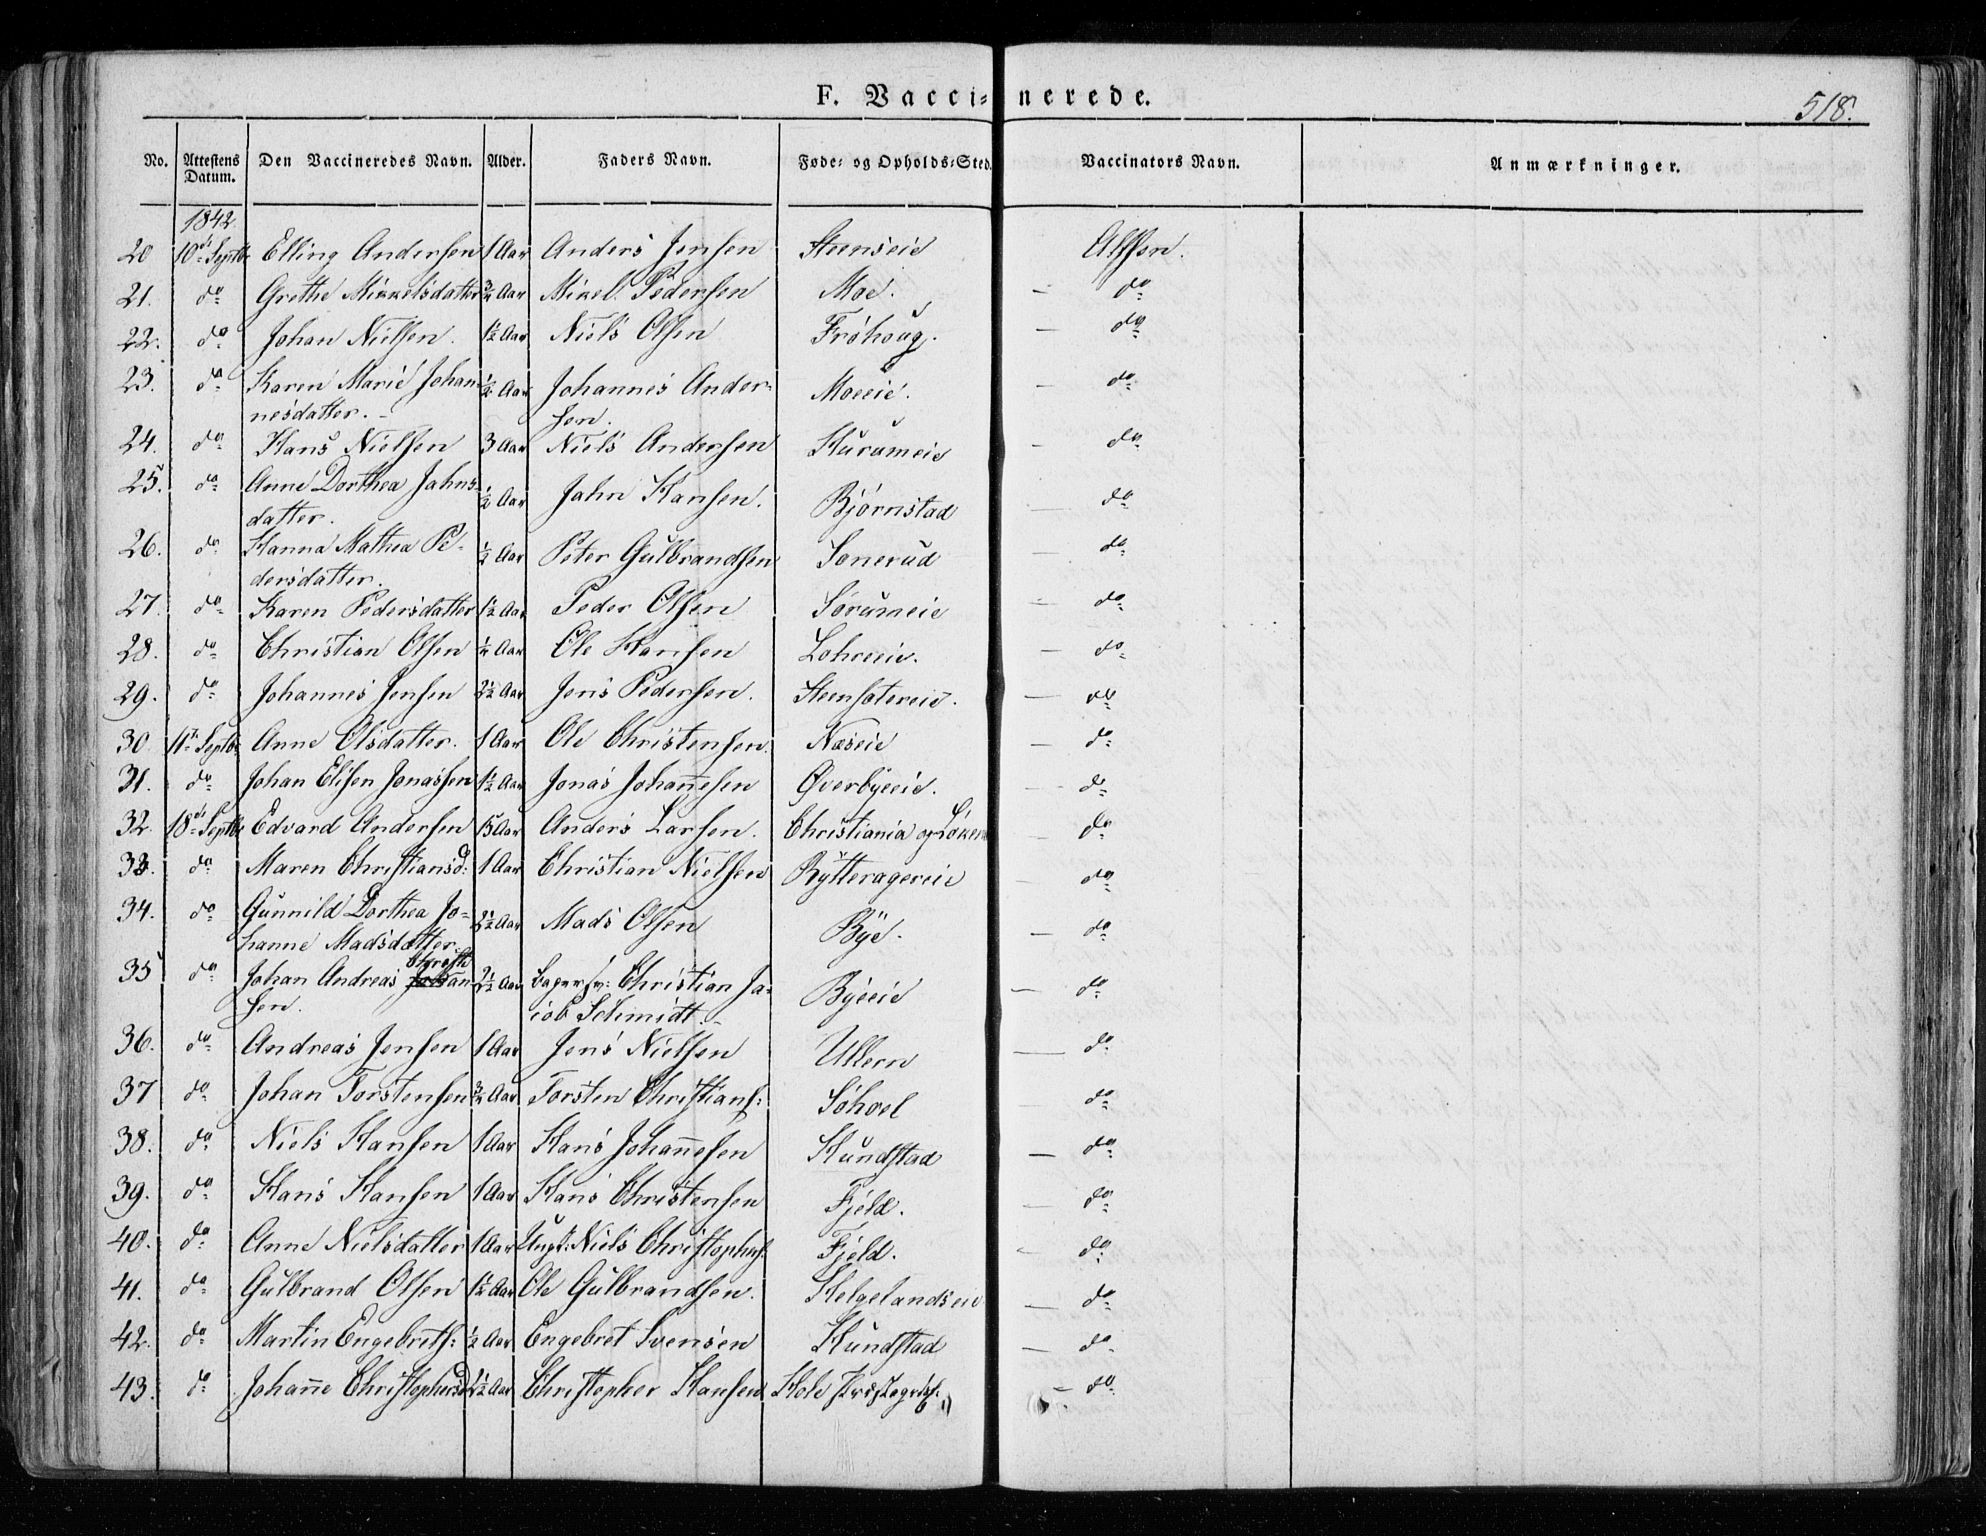 F. Vaccinerede.
518.
No. Attestens Datum. Den Vaccineredes Navn. Alder. Faders Navn. Føde- og Opholds-Sted. Vaccinators Navn. Anmærkninger.
1842
20 10de Septbr Elling Andersen 1 Aar Anders Jensen Steenseie
21. do Grethe Mikkelsdatter 3/4 Aar Mikel Pedersen Moe. – do
22. do Johan Nielsen. 1½ Aar Niels Olsen Frøhoug. – do
23. do Karen Marie Johan- ½ Aar Johannes Ander- Moeeie. – do
nesdatter. – sen.
24. do Hans Nielsen 3 Aar Niels Andersen – do
25. do Anne Dorthea Jahns- ½ Aar Jahn Hansen. Bjørnstad – do
datter.
26. do Hanna Mathea Pe- ½ Aar Peter Gulbrandsen Sonerud – do
dersdatter.
27. do Karen Pedersdatter 1½ Aar Peder Olsen Sørumeie – do
28. do Christian Olsen ¼ Aar Ole Hansen Lohreeie. – do
29. do Johannes Jensen 2½ Aar Jens Pedersen. Steensætereie. – do
30. 11te Septbr Anne Olsdatter. 1 Aar Ole Christensen. Næseie – do
31. do Johan Elisen Jonassen 1½ Aar Jonas Johannesen Øverbyeeie. – do
32. 18de Septbr Edvard Andersen 5 Aar Anders Larsen. Christiania og Løken – do
33. do Maren Christiansd: 1 Aar Christian Nielsen Rytteragereie – do
34. do Gunnild Dorthea Jo- 2½ Aar Mads Olsen Bye. – do
hanne Madsdatter.
35 do Johan Andreas Christian- 2½ Aar Christian Ja- Byeeie – do
sen. cob Schmidt. –
36. do Andreas Jensen 1 Aar Jens Nielsen Ullern – do
37 do Johan Torstensen 3/4 Aar Torsten Christians: Søhoel – do
38. do Niels Hansen 1 Aar Hans Johannesen Kundstad – do
39. do Hans Hansen 1 Aar Hans Christensen Fjeld. – do
40. do Anne Nielsdatter 1 Aar Ungk: Niels Christophers: Fjeld. – do
41. do Gulbrand Olsen 1½ Aar Ole Gulbrandsen. Helgelandseie – do
42. do Martin Engebrets: ½ Aar Engebret Svensen Kundstad – do
43. do Johanne Christophersd. 1½ Aar Christopher Hansen Hole Præstegield. – do